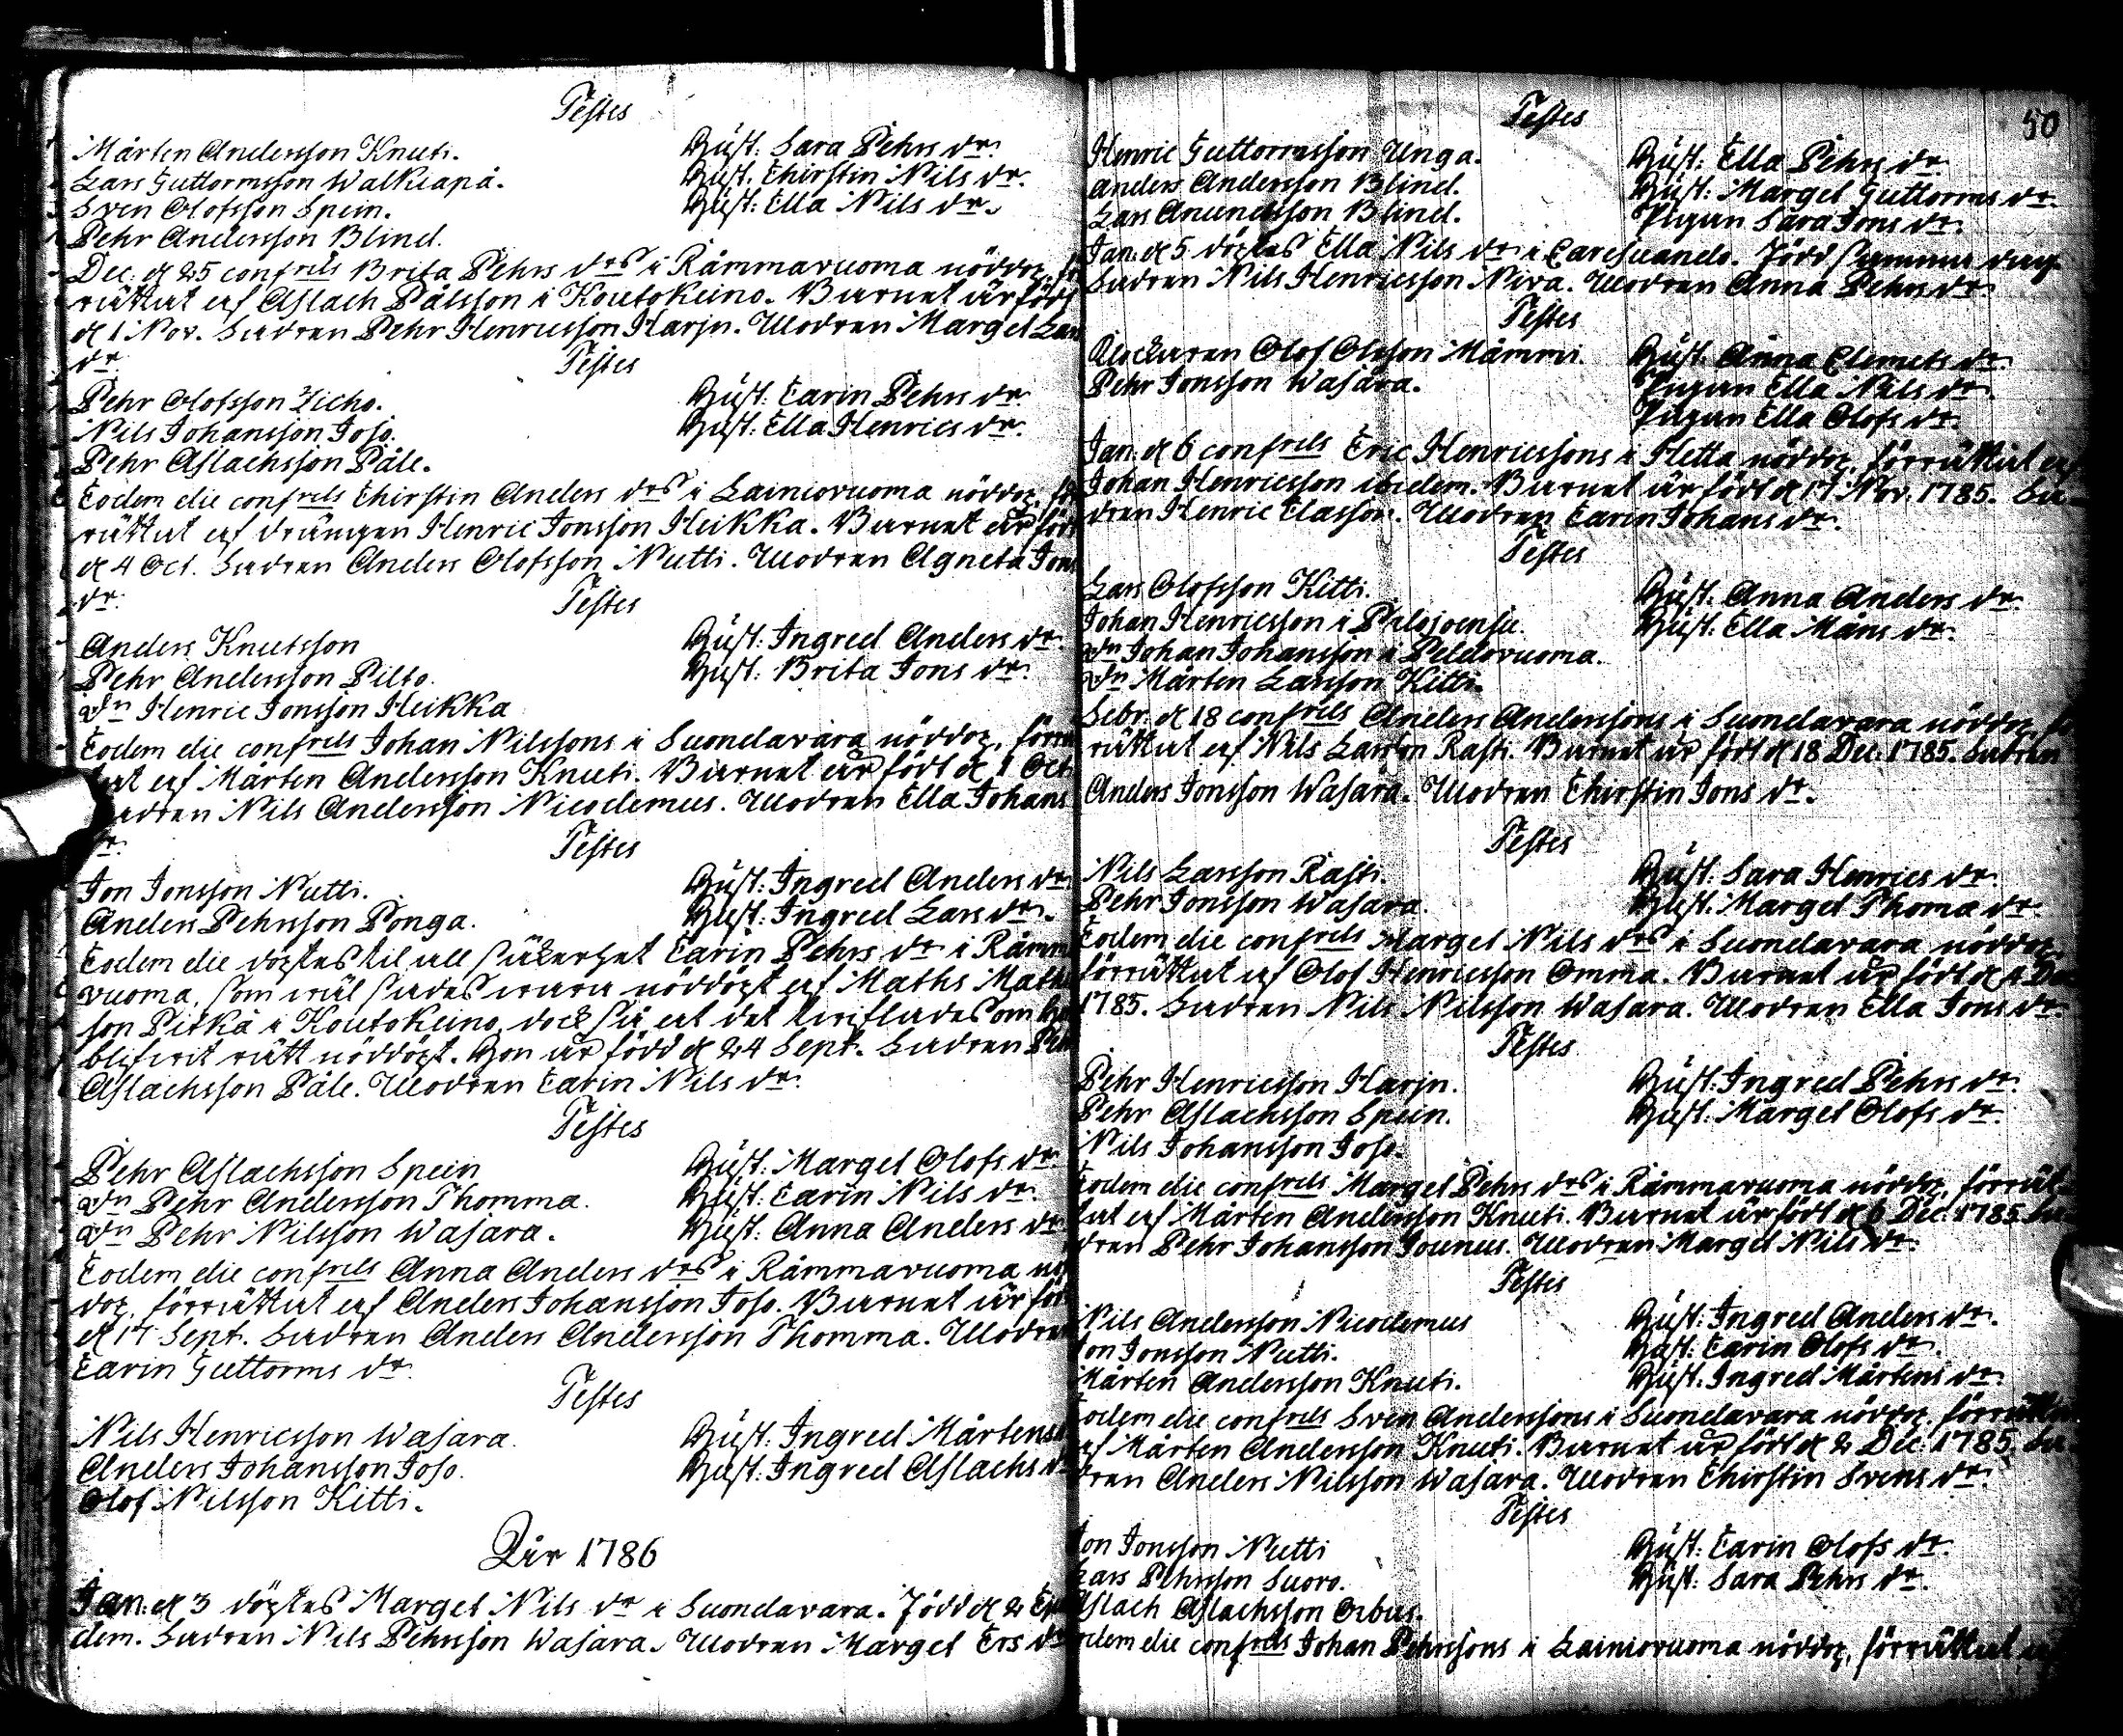 Testes
Mårten Andersson Knuti. Hust: Sara Pehrs dr.
Lars Guttormsson Walkiapä. Hust. Chirstin Nils dr.
Sven Olofsson Spein. Hust: Ella Nils dr.
Pehr Andersson Blind.
Dec. d 25 confrels Brita Pehrs drs i Råmmavuoma nöddop, för
rättat af Aslach Pålsson i Koutokeino. Barnet är född
d 1 Nov. Fadren Pehr Henricsson Harju. Modren Marget Lars
dr.
Testes
Pehr Olofsson Zicho. Hust: Carin Pehrs dr.
Nils Johansson Joso. Hust: Ella Henrics dr.
Pehr Aslachsson Påle.
Eodem die confrels Chirstin Anders drs i Lainiovuoma nöddop, för
rättat af drängen Henric Jonsson Heikka. Barnet är född
d 4 Oct. Fadren Anders Olofsson Nutti. Modren Agneta Jons
dr.
Testes
Anders Knutsson Hust: Ingred Anders dr.
Pehr Andersson Pilto. Hust: Brita Jons dr.
dn Henric Jonsson Heikka
Eodem die confrels Johan Nilssons i Suondavara nöddop, förrä
tat af Mårten Andersson Knuti. Barnet är födt d 1 Oct.
Fadren Nils Andersson Nicodemus. Modren Ella Johans
dr.
Testes
Jon Jonsson Nutti. Hust: Ingred Anders dr
Anders Pehrsson Ponga. Hust: Ingred Lars dr.
Eodem die döptes til all säkerhet Carin Pehrs dr i Råmma
vuoma, som wäl sades wara nöddöpt af Maths Maths
son Pitkä i Koutokeino, dock så at det twiflades om hon
blifwit rätt nöddöpt. Hon är född d 24 Sept. Fadren Pehr
Aslachsson Påle. Modren Carin Nils dr.
Testes
Pehr Aslachsson Spein Hust: Marget Olofs dr.
dn Pehr Andersson Thomma. Hust: Carin Nils dr.
dn Pehr Nilsson Wasara. Hust: Anna Anders dr
Eodem die confrels Anna Anders drs i Råmmavuoma nöd
dop, förrättat af Anders Johansson Joso. Barnet är född
d 17 Sept. Fadren Anders Andersson Thomma. Modren
Carin Guttorms dr.
Testes
Nils Henricsson Wasara. Hust: Ingred Mårtens
Anders Johansson Joso. Hust: Ingred Aslachs dr
Olof Nilsson Kitti.
År 1786
Jan: d 3 döptes Marget Nils dr i Suondavara. Född d 2 Ejus
dem. Fadren Nils Pehrsson Wasara. Modren Marget Ers dr
50
Testes
Henric Guttormsson Unga. Hust: Ella Pehrs dr.
Anders Andersson Blind. Hust: Marget Guttorms dr.
Lars Amundsson Blind. Pigan Sara Jons dr.
Jan. d 5 döptes Ella Nils dr i Caresuando. Född samma dag.
Fadren Nils Henricsson Niva. Modren Anna Pehrs dr.
Testes
Klockaren Olof Olofson Mämmi. Hust: Anna Clemets dr.
Pehr Jonsson Wasara. Pigan Ella Nils dr.
Pigan Ella Olofs dr.
Jan. d 6 confrels Eric Henricssons i Hetta nöddop, förrättat af
Johan Henricsson ibidem. Barnet är födt d 17 Nov. 1785. Fa-
dren Henric Classon. Modren Carin Johans dr.
Testes
Lars Olofsson Kitti. Hust. Anna Anders dr.
Johan Henricsson i Hust: Ella Måns dr.
dn Johan Johansson i Peldovuoma.
dn Mårten Larsson Kitti.
Febr. d 18 confrels Anders Anderssons i Suondavara nöddop, för
rättat af Nils Larsson Rasti. Barnet är födt d 18 Dec. 1785. Fadren
Anders Jonsson Wasara. Modren Chirstin Jons dr.
Testes
Nils Larsson Rasti. Hust: Sara Henrics dr.
Pehr Jonsson Wasara. Hust. Marget Thoma dr.
Eodem die confrels Marget Nils drs i Suondavara nöddop,
förrättat af Olof Henricsson Omma. Barnet är födt d 4 Dec
1785. Fadren Nils Nilsson Wasara. Modren Ella Jons dr.
Testes
Pehr Henricsson Harju. Hust: Ingred Pehrs dr.
Pehr Aslachsson Spein. Hust: Marget Olofs dr.
Nils Johansson Joso.
Eodem die confrels Marget Pehrs drs i Råmmavuoma nöddop, förrät-
tat af Mårten Andersson Knuti. Barnet är födt d 6 Dec. 1785. Fa-
dren Pehr Johansson Jounus. Modren Marget Nils dr.
Testes
Nils Andersson Nicodemus Hust: Ingred Anders dr.
Jon Jonsson Nutti. Hust: Carin Olofs dr.
Mårten Andersson Knuti. Hust: Ingred Mårtens dr.
Eodem die confrels Sven Anderssons i Suondavara nöddop, förrättat
af Mårten Andersson Knuti. Barnet är födt d 2 Dec: 1785. Fa-
dren Anders Nilsson Wasara. Modren Chirstin Svens dr.
Testes
Jon Jonsson Nutti Hust: Carin Olofs dr.
Lars Pehrsson Suoro. Hust: Sara Pehrs dr.
Aslach Aslachsson Orbus.
Eodem die confrels Johan Pehrssons i Lainiovuoma nöddop, förrättat af